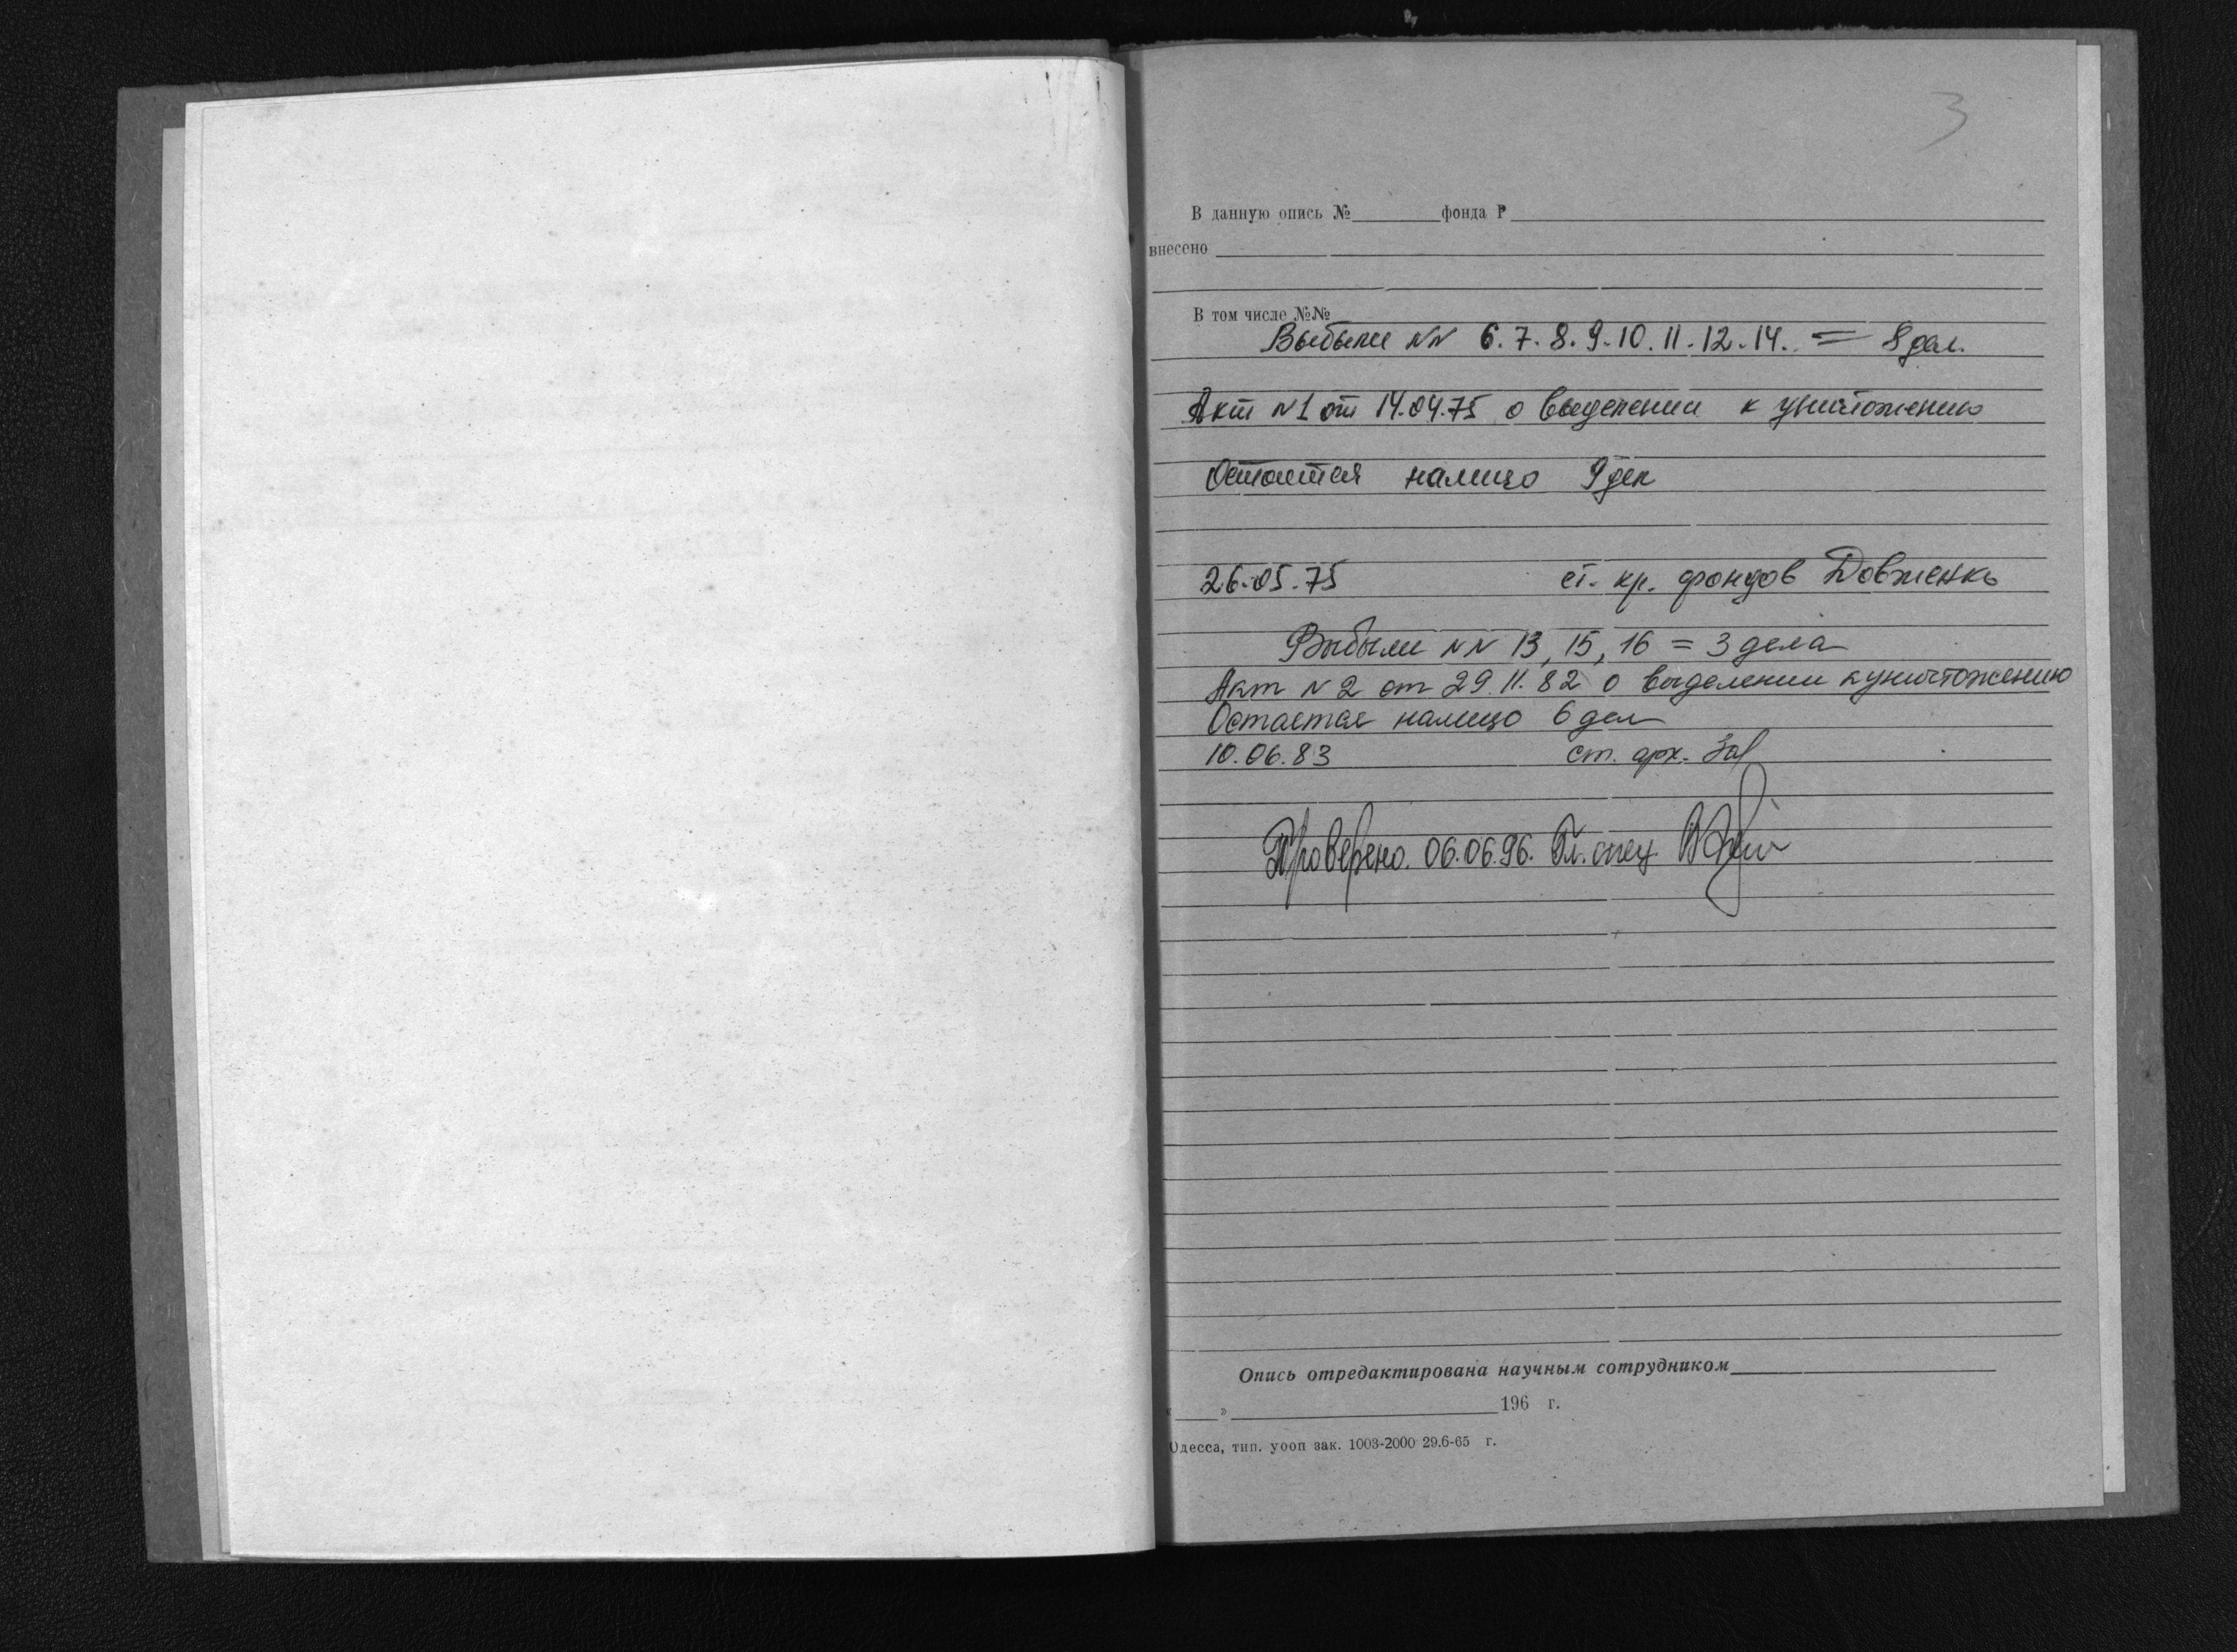 3
В данную опись № фонда Р
внесено
В том числе №№
Выбыли NN 6. 7. 8. 9. 10. 11. 12. 14. = 8 дел.
Акт N1 от 14.04.75 о выделении к уничтожению
Остается налицо 9 дел
26.05.75 ст. хр. фондов Довженко
Выбыли NN 13, 15, 16 = 3 дела
Акт N 2 от 29.11.82 о выделении к уничтожению
Остается налицо 6 дел
10.06.83 ст. арх.
Проверено. 06.06.96. Гл. спец.
Опись отредактирована научным сотрудником
« » 196 г.
Одесса, тип. уооп зак. 1003-2000 29.6-65 г.